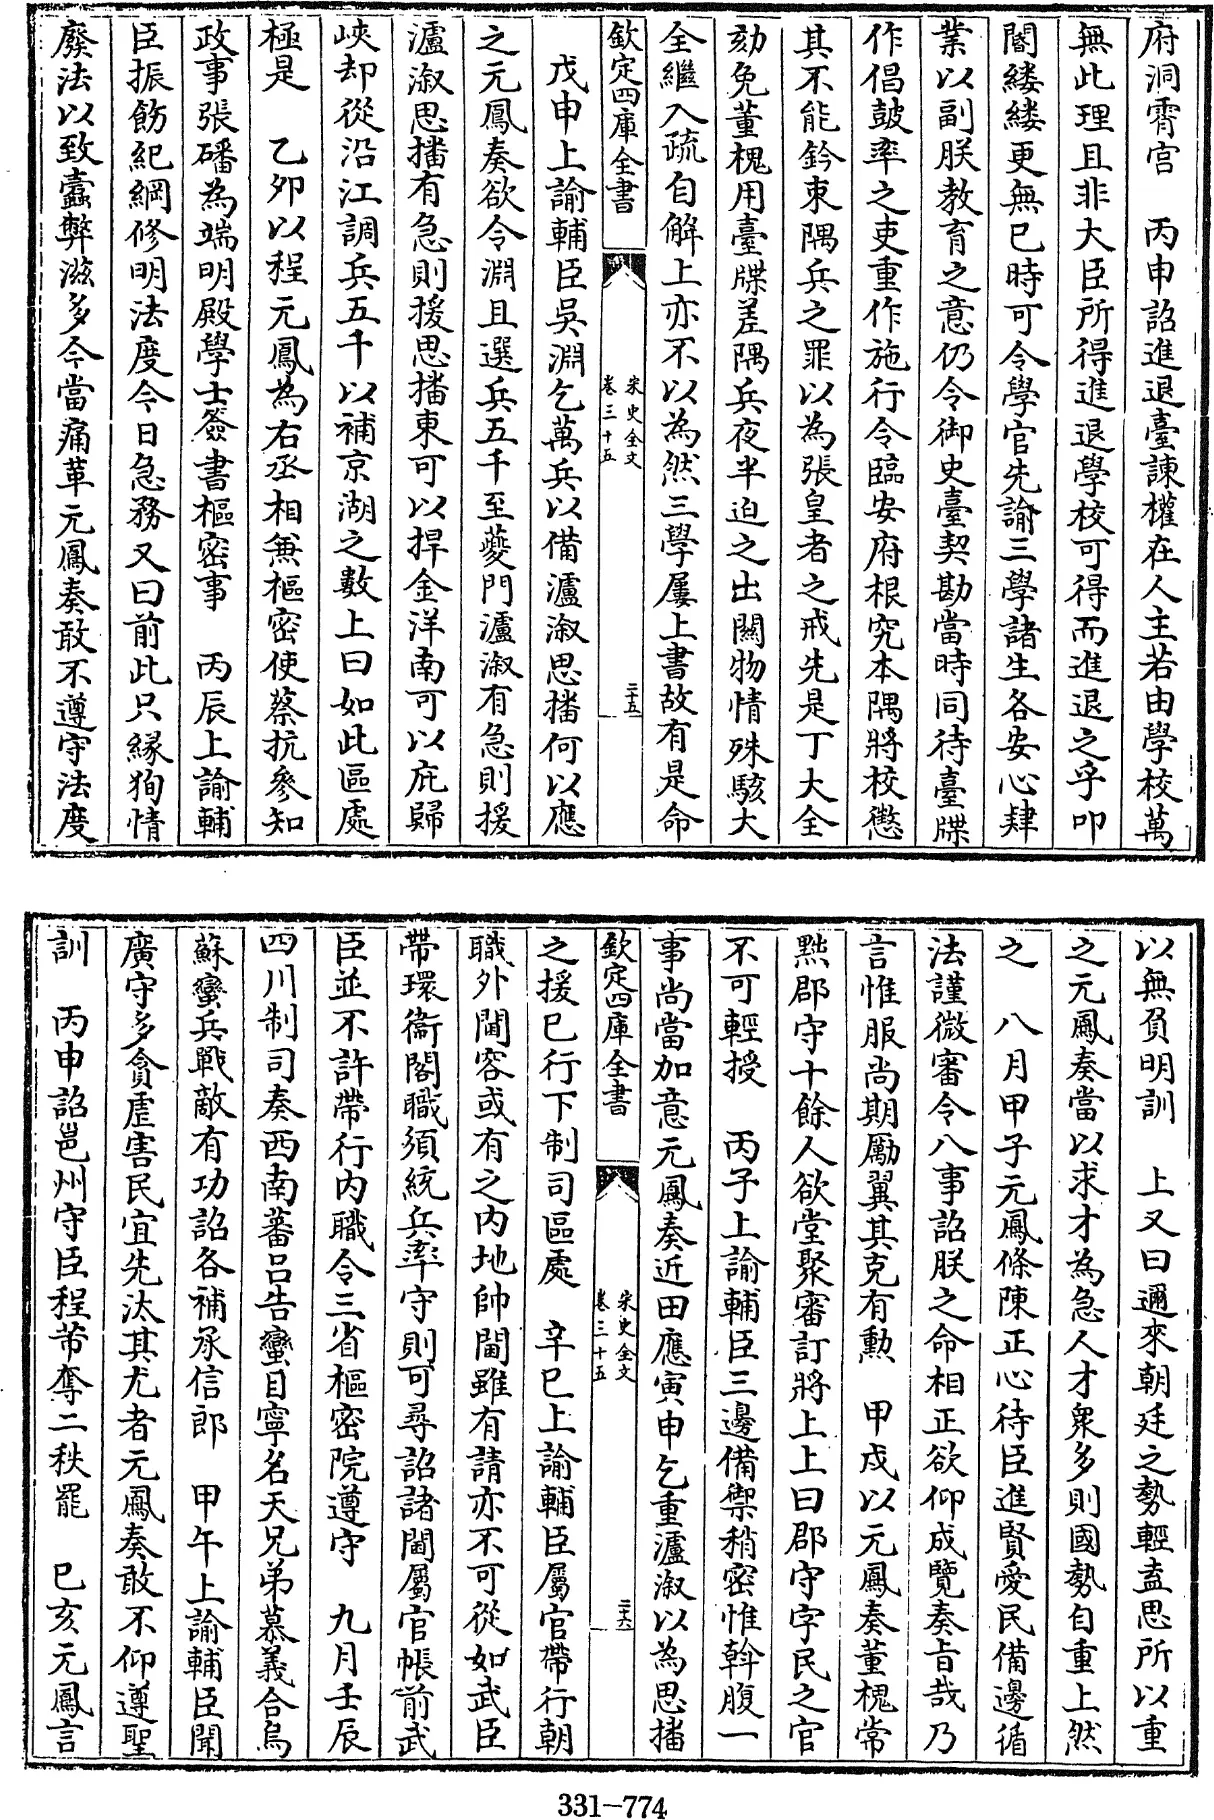 府洞霄宫　丙申詔進退臺諫權在人主若由學校萬
無此理且非大臣所得進退學校可得而進退之乎叩
閽縷縷更無已時可令學官先諭三學諸生各安心肄
業以副朕教育之意仍令御史臺契勘當時同待臺牒
作倡鼓率之吏重作施行令臨安府根究本隅將校懲
其不能鈐束隅兵之罪以為張皇者之戒先是丁大全
劾免董槐用臺牒差隅兵夜半迫之出關物情殊駭大
全繼入疏自解上亦不以為然三學屢上書故有是命
欽定四庫全書
宋史全文
卷三十五
三十五
戊申上諭輔臣吳淵乞萬兵以備瀘溆思播何以應
之元鳳奏欲令淵且選兵五千至夔門瀘溆有急則援
瀘溆思播有急則援思播東可以捍金洋南可以庇歸
峽却從沿江調兵五千以補京湖之數上曰如此區處
極是　乙夘以程元鳳為右丞相兼樞密使蔡抗參知
政事張磻為端明殿學士簽書樞密事　丙辰上諭輔
臣振飭紀綱修明法度今日急務又曰前此只縁狥情
廢法以致蠧弊滋多今當痛革元鳳奏敢不遵守法度
以無負明訓　上又曰邇來朝廷之勢輕盍思所以重
之元鳳奏當以求才為急人才衆多則國勢自重上然
之　八月甲子元鳳條陳正心待臣進賢愛民備邊循
法謹微審令八事詔朕之命相正欲仰成覽奏旨哉乃
言惟服尚期勵翼其克有勲　甲戍以元鳳奏董槐常
㸃郡守十餘人欲堂聚審訂將上上曰郡守字民之官
不可輕授　丙子上諭輔臣三邊備禦稍密惟斡腹一
事尚當加意元鳳奏近田應寅申乞重瀘溆以為思播
欽定四庫全書
宋史全文
卷三十五
三十六
之援已行下制司區處　辛巳上諭輔臣屬官帶行朝
職外閫容或有之内地帥閫雖有請亦不可從如武臣
帶環衞閣職須統兵率守則可尋詔諸閫屬官帳前武
臣並不許帶行内職令三省樞密院遵守　九月壬辰
四川制司奏西南蕃呂告蠻目寧名天兄弟慕義合烏
蘇蠻兵戰敵有功詔各補承信郎　甲午上諭輔臣聞
廣守多貪虐害民宜先汰其尤者元鳳奏敢不仰遵聖
訓　丙申詔邕州守臣程芾奪二秩罷　巳亥元鳳言
331-774